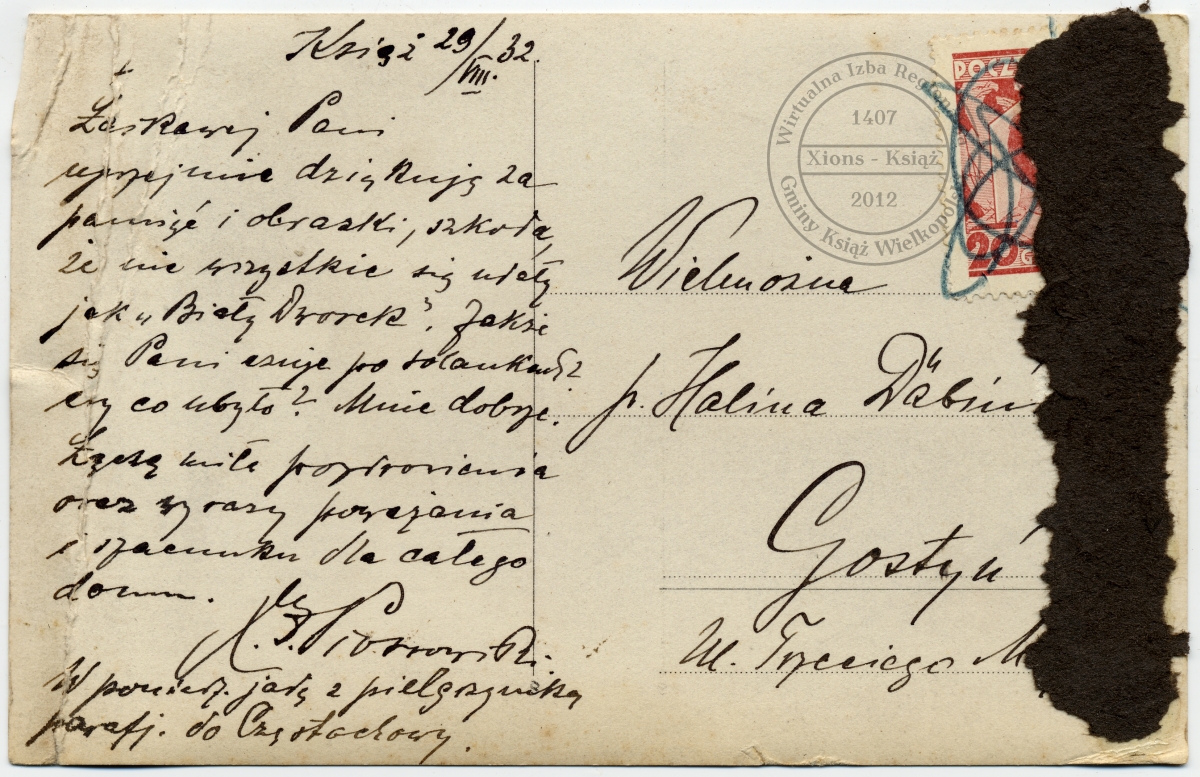 Książ 29/VIII. 32.
Łaskawej Pani
uprzejmie dziękuję za
pamięć i obrazki, szkoda,
że nie wszystkie się udały
jak „Biały Dworek”. Jakże
się Pani czuje po solankach?
czy co ubyło? Mnie dobrze.
Łączę miłe pozdrowienia
oraz wyrazy poważania
i szacunku dla całego
domu.
Piotrowski.
W poniedz. jadę z pielgrzymką
parafj. do Częstochowy.
Wielmożna
p. Halina Dąbiń
Gostyń
ul. Trzeciego M
POCZ
Wirtualna Izba Region
1407
Xions - Książ
2012
Gminy Książ Wielkopols